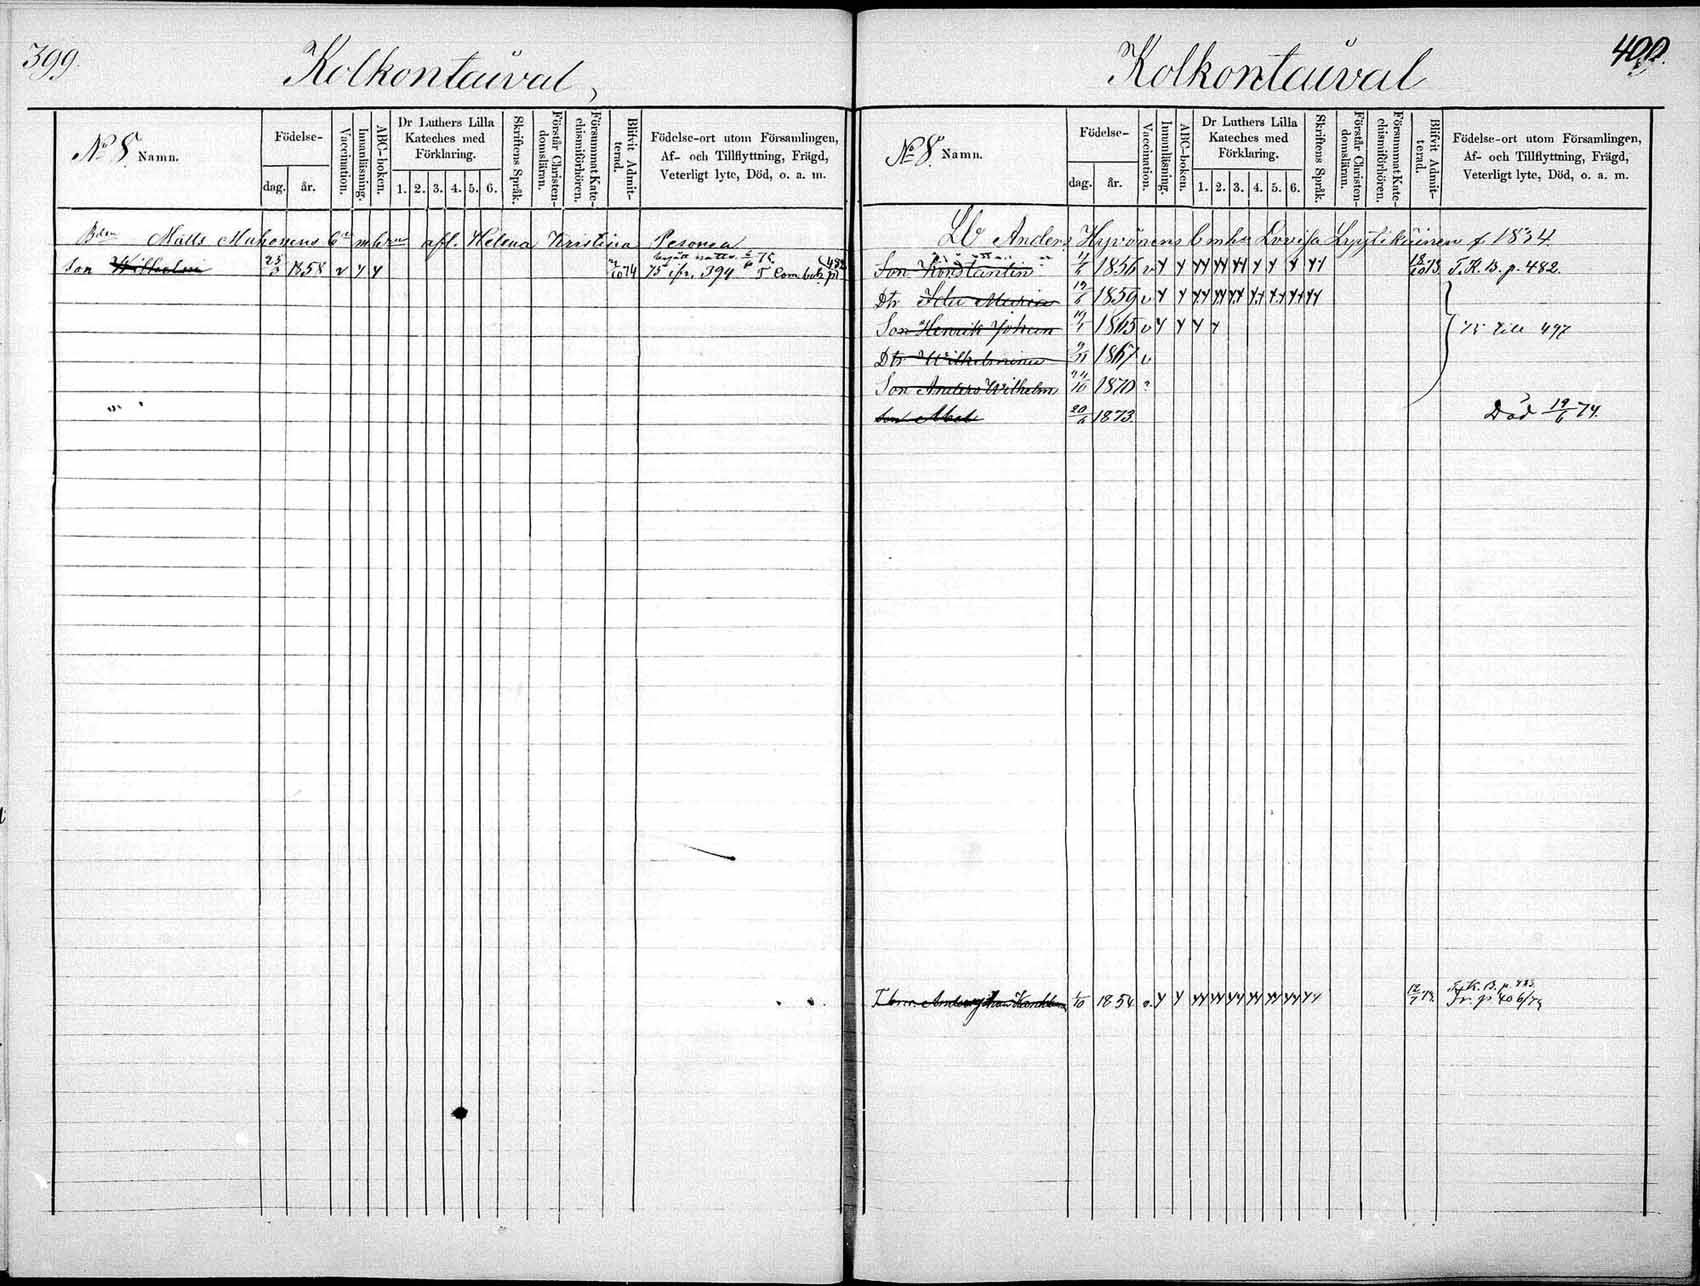 399.
Kolkontaival,
No 8. Namn.
Födelse-
dag.
år.
Vaccination.
Innanläsning.
ABC-boken.
Dr Luthers Lilla
Kateches med
Förklaring.
1. 2. 3. 4. 5. 6.
Skriftens Språk.
Förstår Christen-
domsläran.
Försummat Kate-
chismiförhören.
Blifvit Admit-
terad.
Födelse-ort utom Församlingen,
Af- och Tillflyttning, Frägd,
Veterligt lyte, Död, o. a. m.
Matts Muhonens afl. Helena Kristina Pesonen
Son Wilhelm 1858 v y y 74 75 394
Kolkontaival
400.
No 8. Namn.
Födelse-
dag.
år.
Vaccination.
Innanläsning.
ABC-boken.
Dr Luthers Lilla
Kateches med
Förklaring.
1. 2. 3. 4. 5. 6.
Skriftens Språk.
Förstår Christen-
domsläran.
Försummat Kate-
chismiförhören.
Blifvit Admit-
terad.
Födelse-ort utom Församlingen,
Af- och Tillflyttning, Frägd,
Veterligt lyte, Död, o. a. m.
Lb Anders Hyvönens Enka Lovisa Lyytikäinen f 1834
Son Konstantin 1856 v y y yy yy yy y y y yy 18/10 73 T. K. B. p. 482.
Dtr Ida Maria 1859 v y y yy yy yy yy yy yy yy
Son Henrik Johan 1865 v y y y y 75 till 497
Dtr Wilhelmina 1867 v
Son Anders Wilhelm 1870 ?
Son 20/6 1873. Död 19/6 74.
1/10 1854 v. y y yy yy yy yy yy yy yy